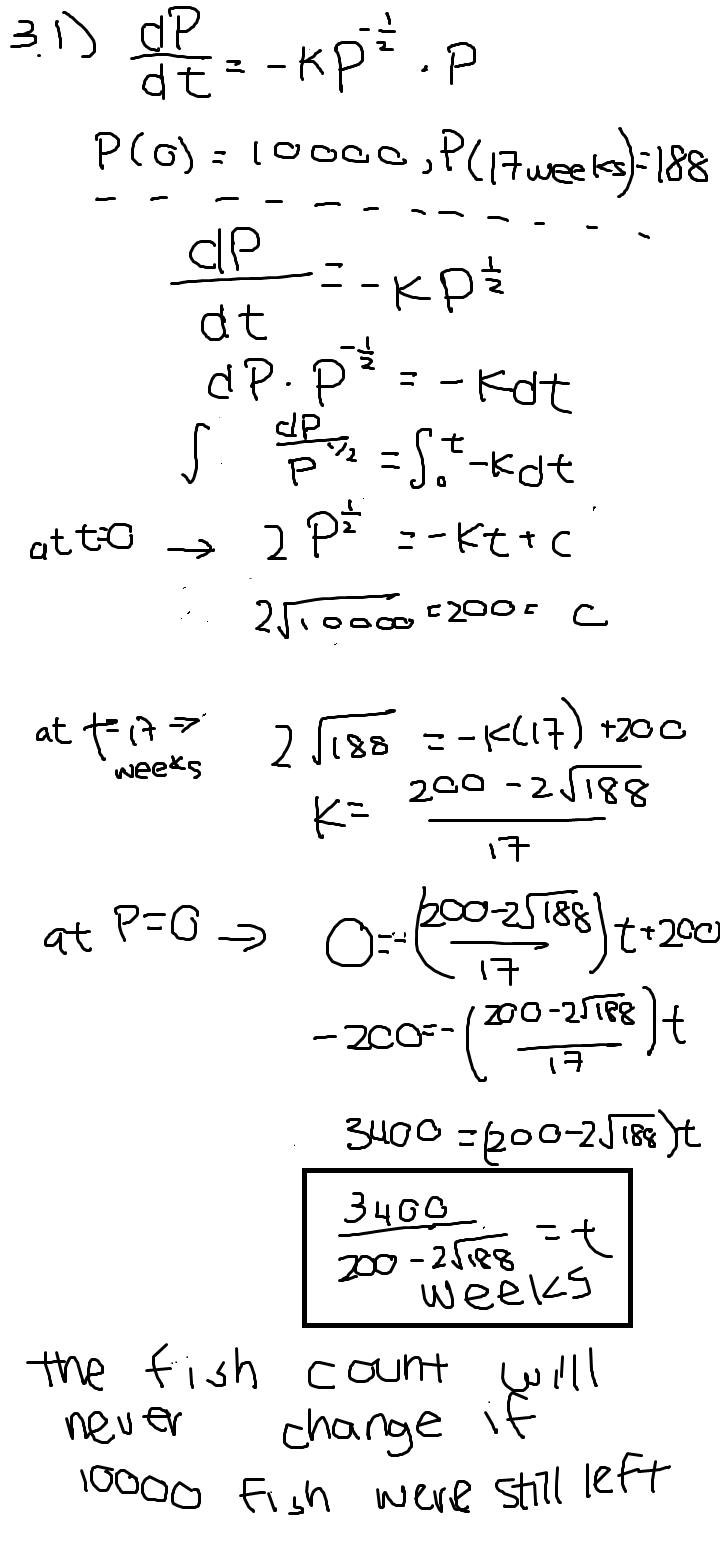 3.1) dP/dt = -KP^{-1/2} · P
P(0) = 10000, P(17 weeks) = 188
dP/dt = -KP^{1/2}
dP · P^{-1/2} = -Kdt
∫ dP/P^{1/2} = ∫_0^t -Kdt
at t=0 → 2P^{1/2} = -Kt + C
2√10000 = 200 = C
at t=17 weeks ⇒ 2√188 = -K(17) +200
K = (200 - 2√188)/17
at P=0 → 0 = -((200-2√188)/17)t+200
-200 = -((200-2√188)/17)t
3400 = (200-2√188)t
3400/(200-2√188) = t
weeks
the fish count will
never change if
10000 fish were still left